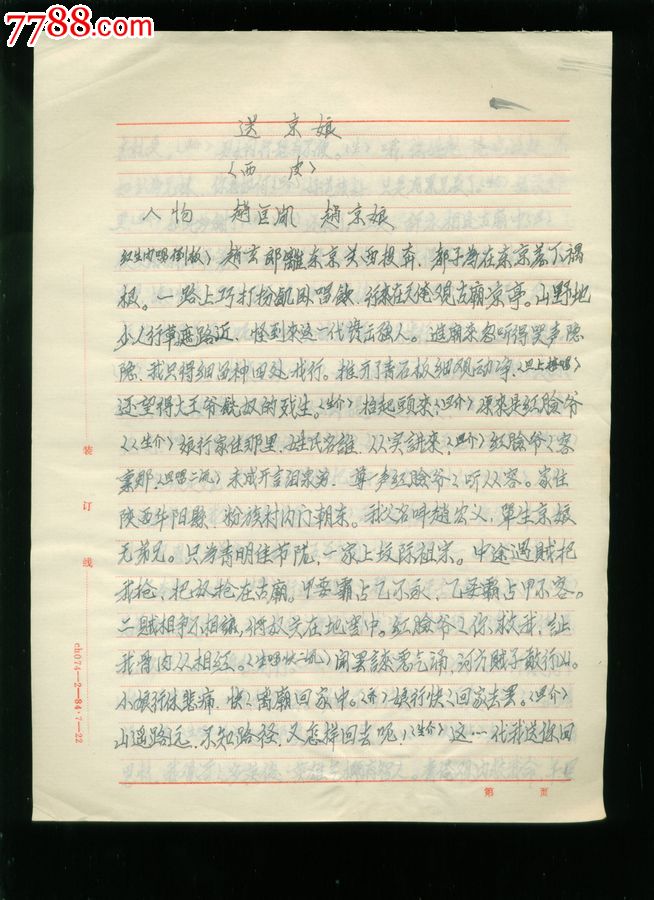 7788.com
送京娘
〈西皮〉
人物 趙匡胤 趙京娘
红生内唱倒板〉趙玄郎離东京关西投奔,都子为在东京惹下禍
根。一路上巧打扮飢困唱飲,行来在天俺观古廟凉亭。山野地
少人行草庶路近,怪到来这一代終出强人。進廟来忽听得哭声隐
隐,我只得细留神四处找行。推开了青石板细观动净,〈旦上接唱〉
还望得大王爷饒奴的残生。〈生介〉抬起頭来,〈旦介〉原来是红脸爷
々〈生介〉娘行家住那里,姓氏名誰,从实講来,〈旦介〉红脸爷々容
禀那,〈旦唱二流〉未成开言泪悲,尊一声红脸爷々听从容。家住
陕西华阳縣,粉族村内門朝东。我父名叫趙宏义,單生京娘
无弟兄。只为青明佳节隴,一家上坟际祖宗。中途遇賊把
我枪,把奴抢在古廟。甲要霸占乙不永,乙要霸占甲不容。
二賊相爭不相讓,得奴关在地雪中。红脸爷々你救我,
我骨肉从相逢。〈生唱快二流〉闻罢言来怒气涌,河方賊子敢行凶。
小娘行休悲痛,快々离廟回家中。〈介〉娘行快々回家去罢。〈旦介〉
山遥路远,不知路径,又怎样回去呢,〈生介〉这…代我送你回
装订线
ch074—2—84·7—22
第 页